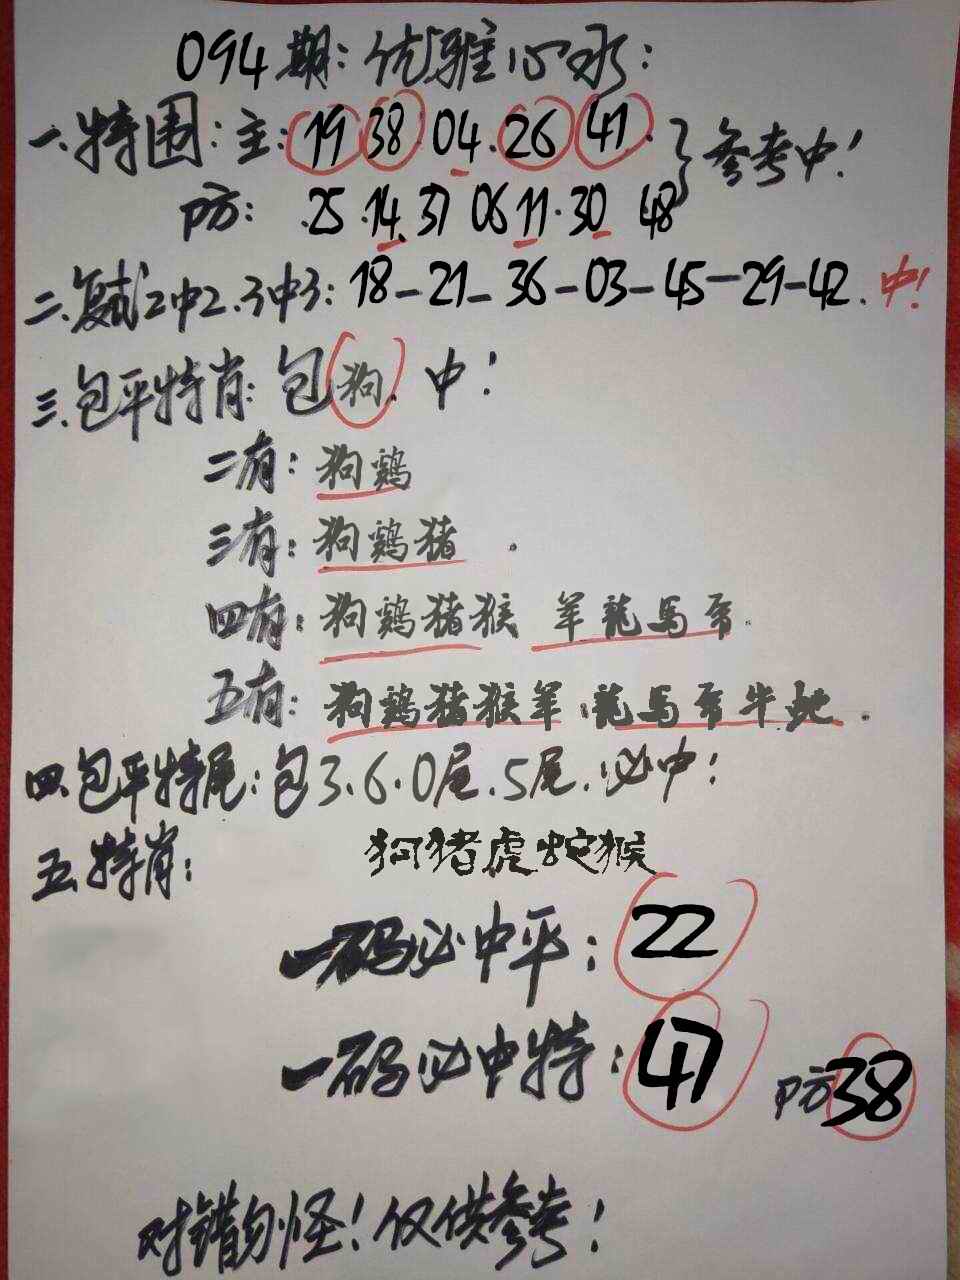 094期:优雅心水:
一.特围:主:19 38 04.26 41. 参考中!
防: .25.14.37 06 11.30 48
二.复式2中2.3中3:18-21-36-03-45-29-42.中!
三.包平特肖:包狗.中!
二有:狗鸡
三有:狗鸡猪.
四有:狗鸡猪猴 羊龍馬
五有:狗鸡猪猴羊.龍馬 牛蛇.
四.包平特尾:包3.6.0尾.5尾.必中!
五.特肖: 狗猪虎蛇猴
一码必中平:22
一码必中特:47 防38
对错勿怪!仅供参考!